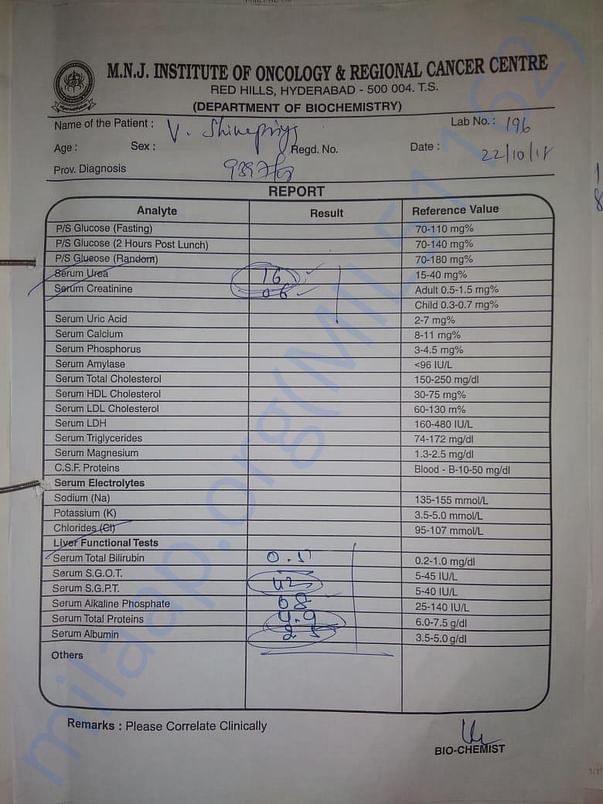 M.N.J. INSTITUTE OF ONCOLOGY & REGIONAL CANCER CENTRE
RED HILLS, HYDERABAD - 500 004. T.S.
(DEPARTMENT OF BIOCHEMISTRY)
Name of the Patient : V. Lab No. : 196
Age : Sex : Regd. No. Date : 22/10/18
Prov. Diagnosis
REPORT
Analyte Result Reference Value
P/S Glucose (Fasting) 70-110 mg%
P/S Glucose (2 Hours Post Lunch) 70-140 mg%
P/S Glucose (Random) 70-180 mg%
Serum Urea 16 15-40 mg%
Serum Creatinine 0.6 Adult 0.5-1.5 mg%
Child 0.3-0.7 mg%
Serum Uric Acid 2-7 mg%
Serum Calcium 8-11 mg%
Serum Phosphorus 3-4.5 mg%
Serum Amylase <96 IU/L
Serum Total Cholesterol 150-250 mg/dl
Serum HDL Cholesterol 30-75 mg%
Serum LDL Cholesterol 60-130 m%
Serum LDH 160-480 IU/L
Serum Triglycerides 74-172 mg/dl
Serum Magnesium 1.3-2.5 mg/dl
C.S.F. Proteins Blood - B-10-50 mg/dl
Serum Electrolytes
Sodium (Na) 135-155 mmol/L
Potassium (K) 3.5-5.0 mmol/L
Chlorides (Cl) 95-107 mmol/L
Liver Functional Tests
Serum Total Bilirubin 0.5 0.2-1.0 mg/dl
Serum S.G.O.T. 5-45 IU/L
Serum S.G.P.T. 42 5-40 IU/L
Serum Alkaline Phosphate 68 25-140 IU/L
Serum Total Proteins 4.9 6.0-7.5 g/dl
Serum Albumin 2.5 3.5-5.0 g/dl
Others
Remarks : Please Correlate Clinically
BIO-CHEMIST